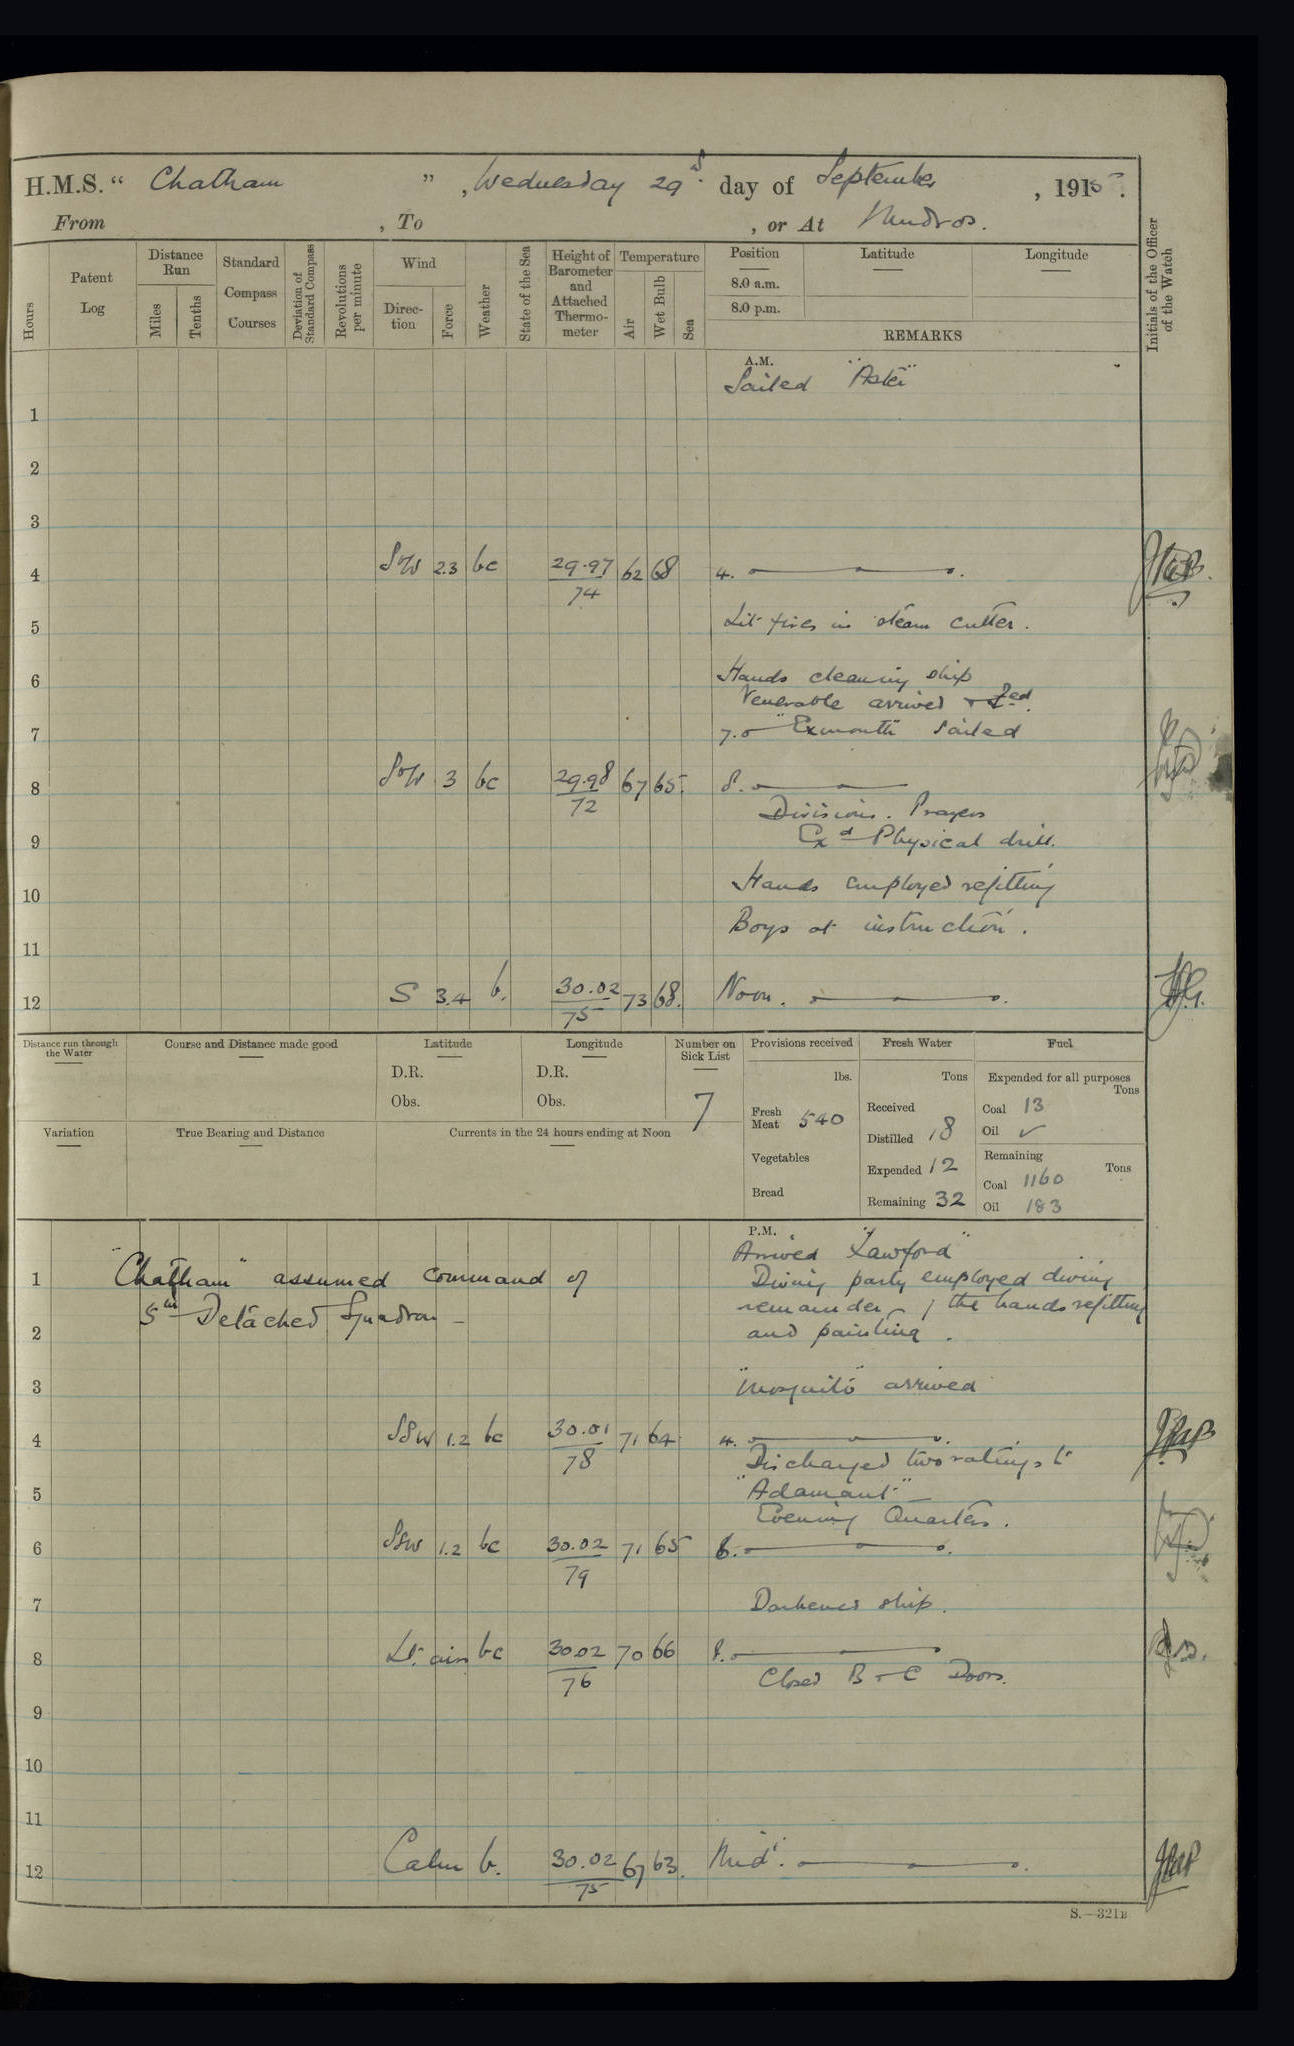 H.M.S. " Chatham " , Wednesday 29 day of September , 1915.
From , To , or At Mudros.
Hours
Patent Log
Distance Run
Miles
Tenths
Standard Compass Courses
Deviation of Standard Compass
Revolutions per minute
Wind
Direction
Force
Weather
State of the Sea
Height of Barometer and Attached Thermometer
Temperature
Air
Wet Bulb
Sea
Position
8.0 a.m.
8.0 p.m.
Latitude
Longitude
REMARKS
Initials of the Officer of the Watch
A.M.
Sailed "Aster"
1
2
3
4 SW 2.3 bc 29.97/74 62 68 4.
5 Lit fires in steam cutter.
6 Hands cleaning ship
Venerable arrived
7 7.0 "Exmouth" sailed
8 SW 3 bc 29.98/72 67 65. 8.
Divisions. Prayers
9 Exd Physical drill.
10 Hands employed refitting
11 Boys at instruction.
12 S 3.4 b. 30.02/75 73 68. Noon.
Distance run through the Water
Course and Distance made good
Latitude
D.R.
Obs.
Longitude
D.R.
Obs.
Number on Sick List
7
Variation
True Bearing and Distance
Currents in the 24 hours ending at Noon
Provisions received
lbs.
Fresh Meat 540
Vegetables
Bread
Fresh Water
Tons
Received
Distilled 18
Expended 12
Remaining 32
Fuel
Expended for all purposes
Tons
Coal 13
Oil ✓
Remaining
Tons
Coal 1160
Oil 183
P.M.
Arrived "Lawford"
1 "Chatham" assumed command of
5th Detached Squadron –
Diving party employed diving
remainder of the hands refitting
2 and painting.
3 "Mosquito" arrived
4 SSW 1.2 bc 30.01/78 71 64 4.
Discharged two ratings to
5 "Adamant"
Evening Quarters.
6 SSW 1.2 bc 30.02/79 71 65 6.
7 Darkened ship.
8 Lt. airs bc 30.02/76 70 66 8.
Closed B & C Doors.
9
10
11
12 Calm b. 30.02/75 67 63. Midt.
S.—321B